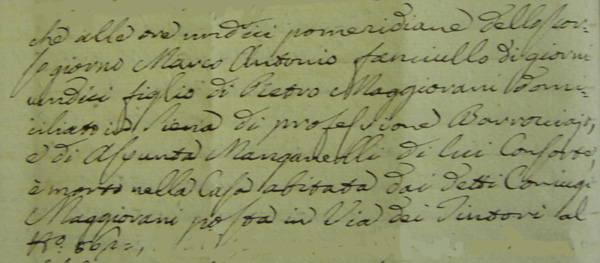 che alle ore undici pomeridiane dello scor-
so giorno Marco Antonio fanciullo di giorni
undici figlio di Pietro Maggiovani domi-
ciliato in Siena di professione Barrocciajo,
e di Assunta Manganelli di lui Consorte,
è morto nella Casa abitata dai detti Coniugi
Maggiovani posta in Via dei Tintori al
N.º